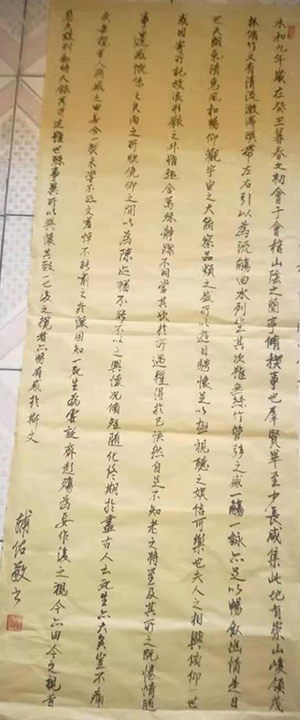 永和九年歲在癸丑暮春之初會于會稽山陰之蘭亭脩稧事也羣賢畢至少長咸集此地有崇山峻領茂
林脩竹又有清流激湍暎帶左右引以為流觴曲水列坐其次雖無絲竹管弦之盛一觴一詠亦足以暢敘幽情是日
也天朗氣清惠風和暢仰觀宇宙之大俯察品類之盛所以遊目騁懷足以極視聽之娛信可樂也夫人之相與俯仰一世
或因寄所託放浪形骸之外雖趣舍萬殊靜躁不同當其欣於所遇暫得於己怏然自足不知老之將至及其所之既惓情隨
事遷感慨係之矣向之所欣俛仰之間以為陳迹猶不能不以之興懷況脩短隨化終期於盡古人云死生亦大矣豈不痛
哉每攬昔人興感之由若合一契未嘗不臨文嗟悼不能喻之於懷固知一死生為虛誕齊彭殤為妄作後之視今亦由今之視昔
悲夫故列敘時人錄其所述雖世殊事異所以興懷其致一也後之攬者亦將有感於斯文
輔佑敏書